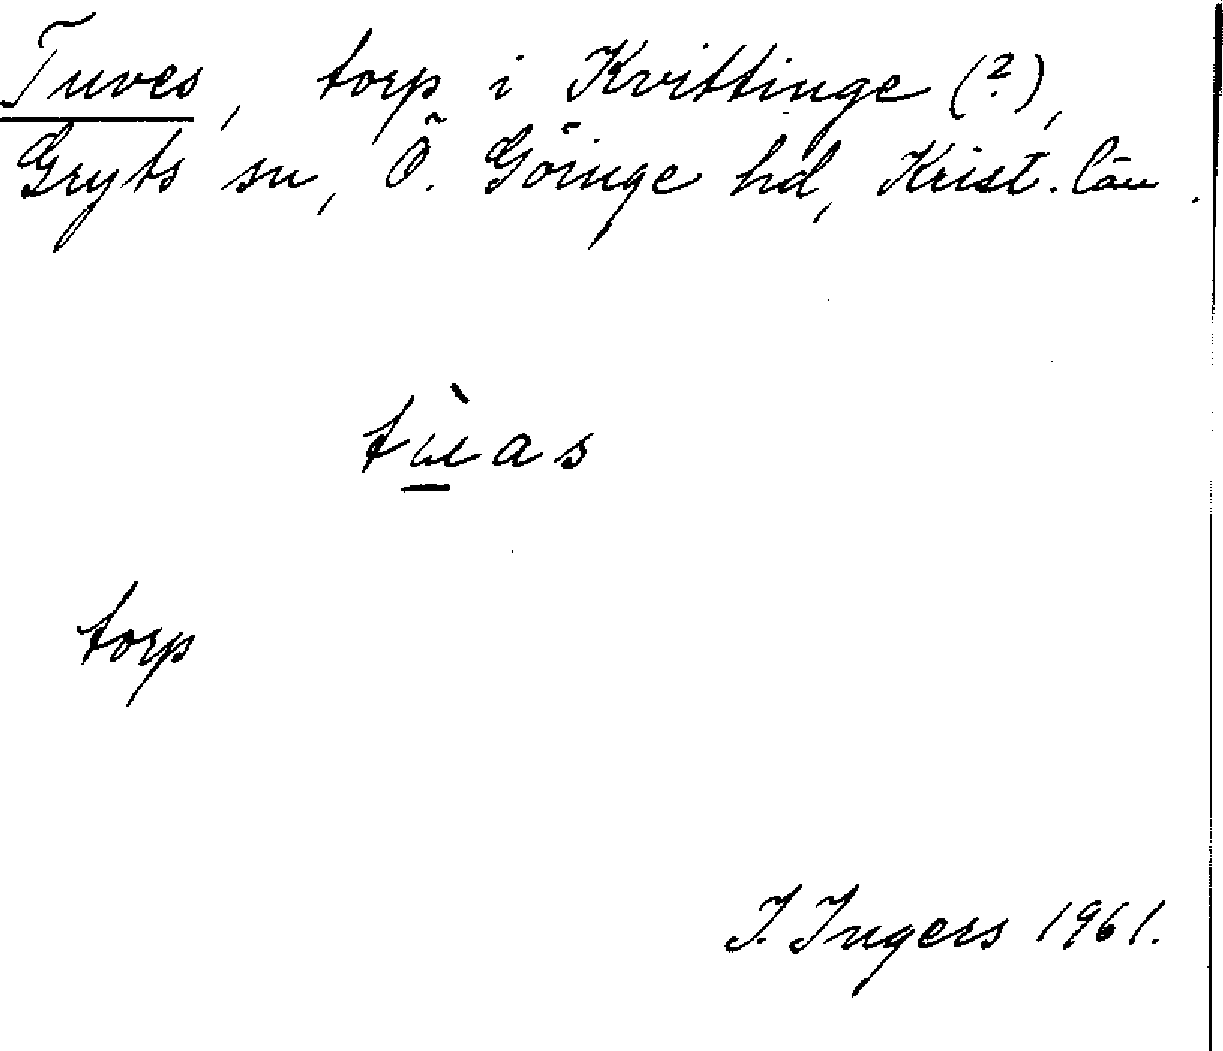 Tuves, torp i Kvittinge (?),
Gryts sn, Ö. Göinge hd, Krist. län.
tùas
torp
I. Ingers 1961.